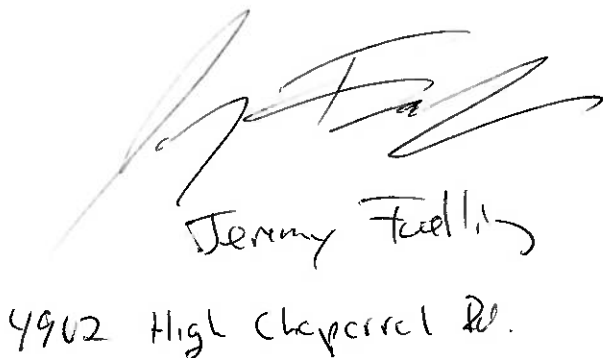 Jeremy Fadling
4902 High Chaparral Rd.